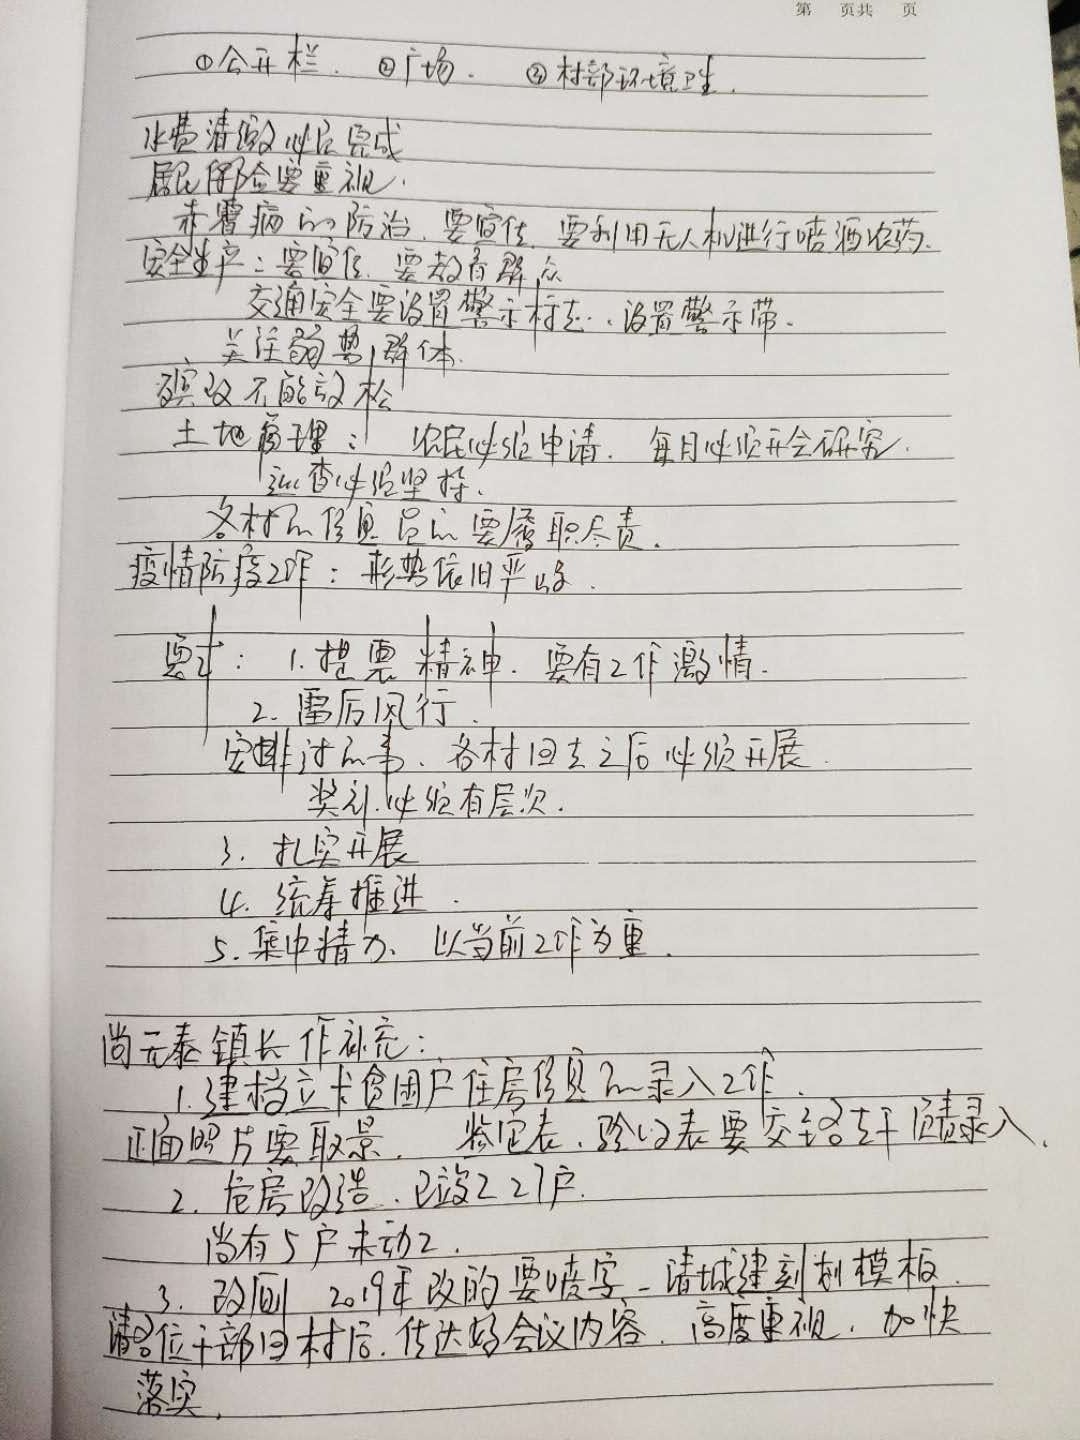 第 页共 页
①公开栏. ②广场. ③村部环境卫生.
水费清缴必须完成
居民保险要重视.
赤霉病的防治.要宣传.要利用无人机进行喷洒农药.
安全生产：要宣传.要教育群众
交通安全要设置警示标志.设置警示带.
关注弱势群体.
殡改不能放松
土地管理： 农民必须申请. 每月必须开会研究.
巡查必须坚持.
各村的信息员的要履职尽责.
疫情防疫工作：形势依旧严峻.
要求：1.提振精神.要有工作激情.
2.雷厉风行.
安排过的事.各村回去之后必须开展.
奖补必须有层次.
3.扎实开展
4.统筹推进.
5.集中精力、以当前工作为重.
尚元泰镇长作补充：
1.建档立卡贫困户住房信息的录入工作.
正面照片要取景. 鉴定表、验收表要交至各支干负责录入.
2.危房改造.已竣工27户.
尚有5户未动工.
3.改厕 2019年改的要喷字 请城建刻制模板.
请各位干部回村后.传达好会议内容.高度重视.加快
落实.